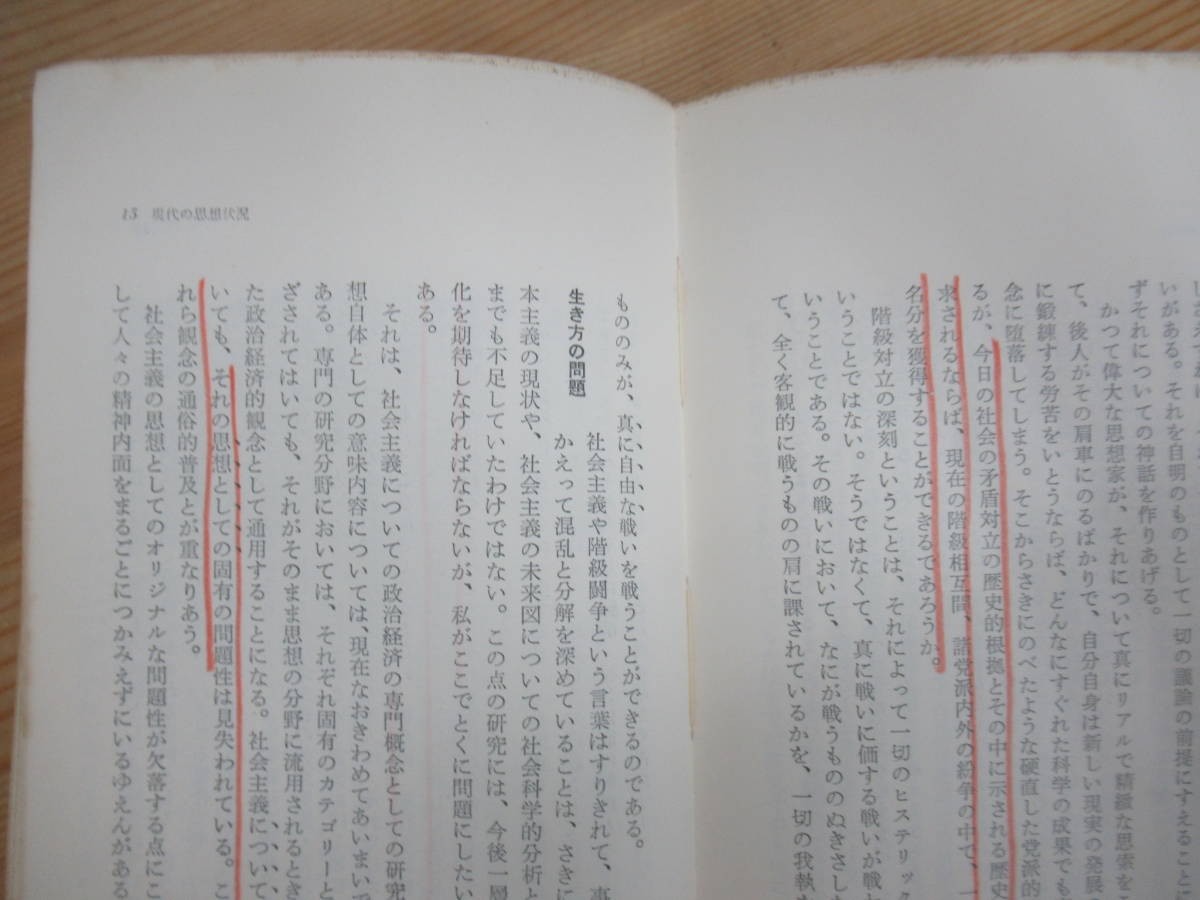 いがある。それを自明のものとして一切の議論の前提にすえることに
ずそれについての神話を作りあげる。
かつて偉大な思想家が、それについて真にリアルで精緻な思索をこ
て、後人がその肩車にのるばかりで、自分自身は新しい現実の発展の
に鍛練する労苦をいとうならば、どんなにすぐれた科学の成果でも
念に堕落してしまう。そこからさきにのべたような硬直した党派的
るが、今日の社会の矛盾対立の歴史的根拠とその中に示される歴史
求されるならば、現在の階級相互間、諸党派内外の紛争の中で、一
名分を獲得することができるであろうか。
階級対立の深刻ということは、それによって一切のヒステリック
いうことではない。そうではなくて、真に戦いに価する戦いが戦わ
いうことである。その戦いにおいて、なにが戦うもののぬきさし
て、全く客観的に戦うものの肩に課されているかを、一切の我執
もののみが、真に自由な戦いを戦うことができるのである。
生き方の問題
社会主義や階級闘争という言葉はすりきれて、事
かえって混乱と分解を深めていることは、さきに
本主義の現状や、社会主義の未来図についての社会科学的分析と
までも不足していたわけではない。この点の研究には、今後一層
化を期待しなければならないが、私がここでとくに問題にしたい
ある。
それは、社会主義についての政治経済の専門概念としての研究
想自体としての意味内容については、現在なおきわめてあいまいで
ある。専門の研究分野においては、それぞれ固有のカテゴリーと
ざされてはいても、それがそのまま思想の分野に流用されるとき
た政治経済的観念として通用することになる。社会主義について
いても、それの思想としての固有の問題性は見失われている。こ
れら観念の通俗的普及とが重なりあう。
社会主義の思想としてのオリジナルな問題性が欠落する点にこ
して人々の精神内面をまるごとにつかみえずにいるゆえんがある
15 現代の思想状況